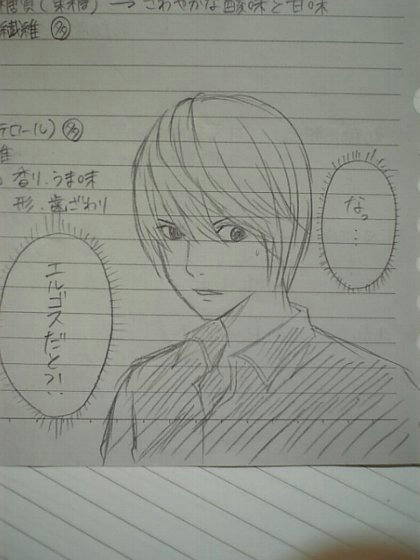 糖質(果糖) → さわやかな酸味と甘味
繊維
ロール)
維
香り.うま味
形.歯ざわり
なっ…
エルゴスだと?!